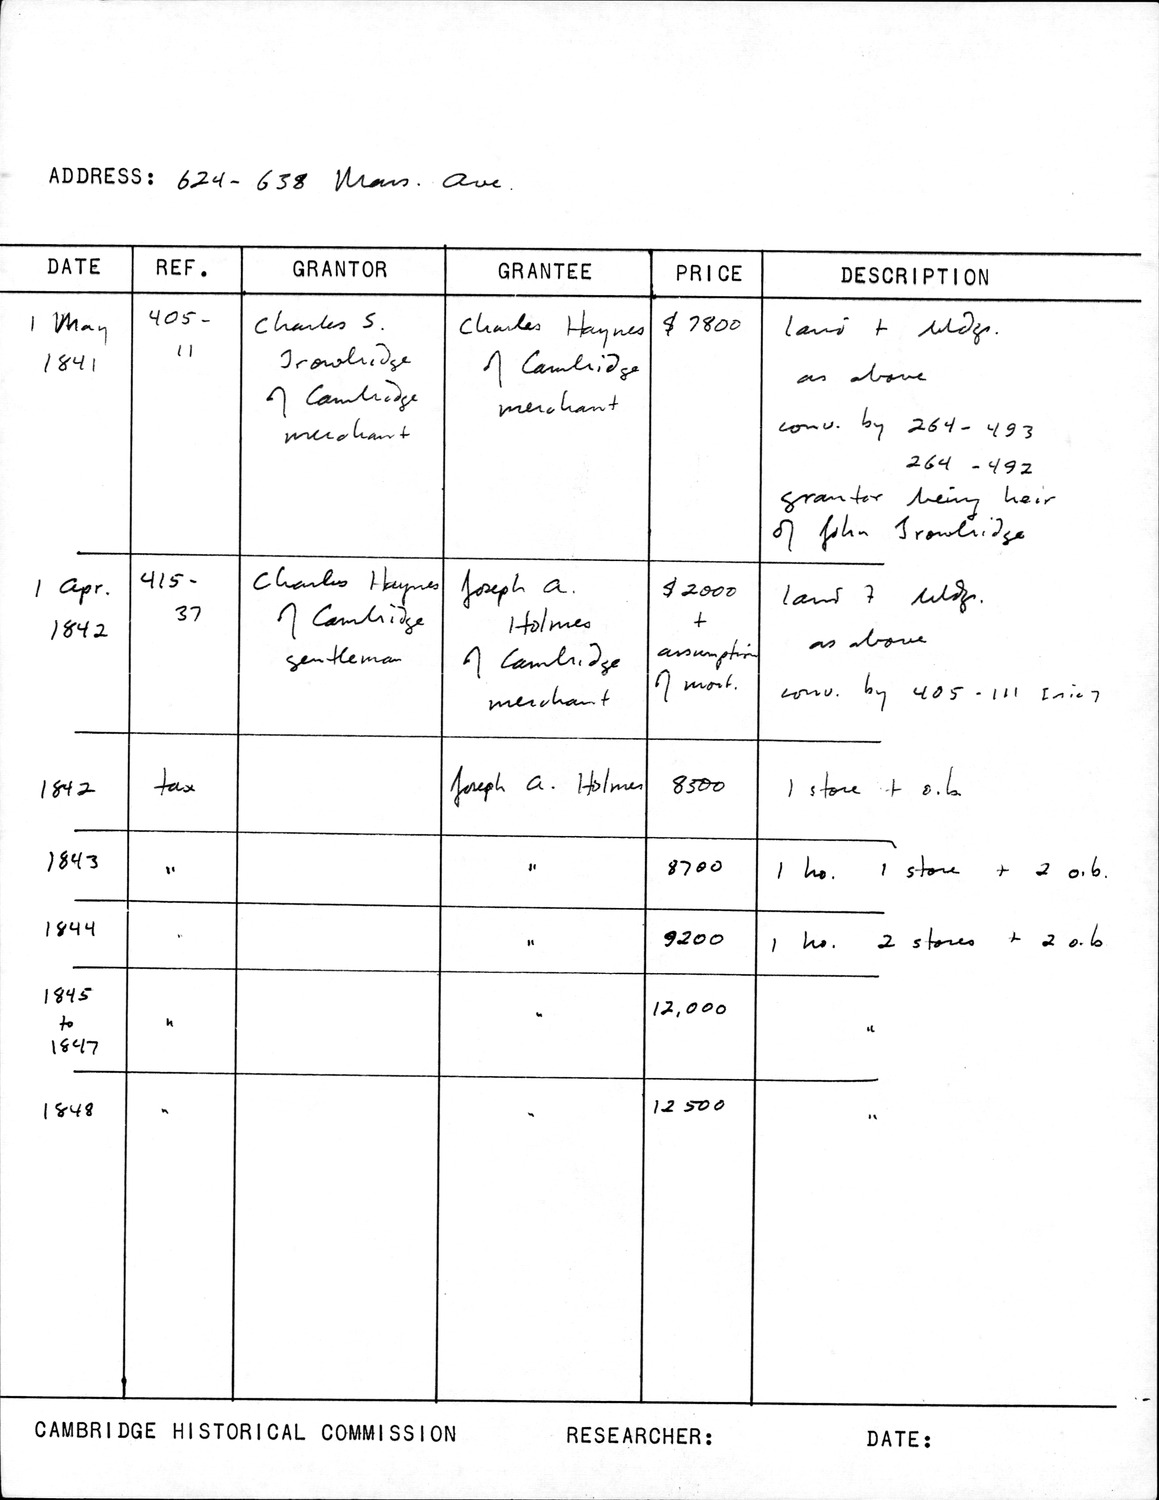 ADDRESS: 624-638 Mass. Ave.
DATE REF. GRANTOR GRANTEE PRICE DESCRIPTION
1 May 405- Charles S. Charles Haynes $7800 land + bldgs.
1841 11 Trowbridge of Cambridge as above
of Cambridge merchant conv. by 264-493
merchant 264-492
grantor being heir
of John Trowbridge
1 Apr. 415- Charles Haynes Joseph A. $2000 land + bldgs.
1842 37 of Cambridge Holmes + as above
gentleman of Cambridge assumption conv. by 405-111
merchant of mort.
1842 tax Joseph A. Holmes 8500 1 store + o.b.
1843 " " 8700 1 ho. 1 store + 2 o.b.
1844 " " 9200 1 ho. 2 stores + 2 o.b
1845
to " " 12,000 "
1847
1848 " " 12500 "
CAMBRIDGE HISTORICAL COMMISSION RESEARCHER: DATE: